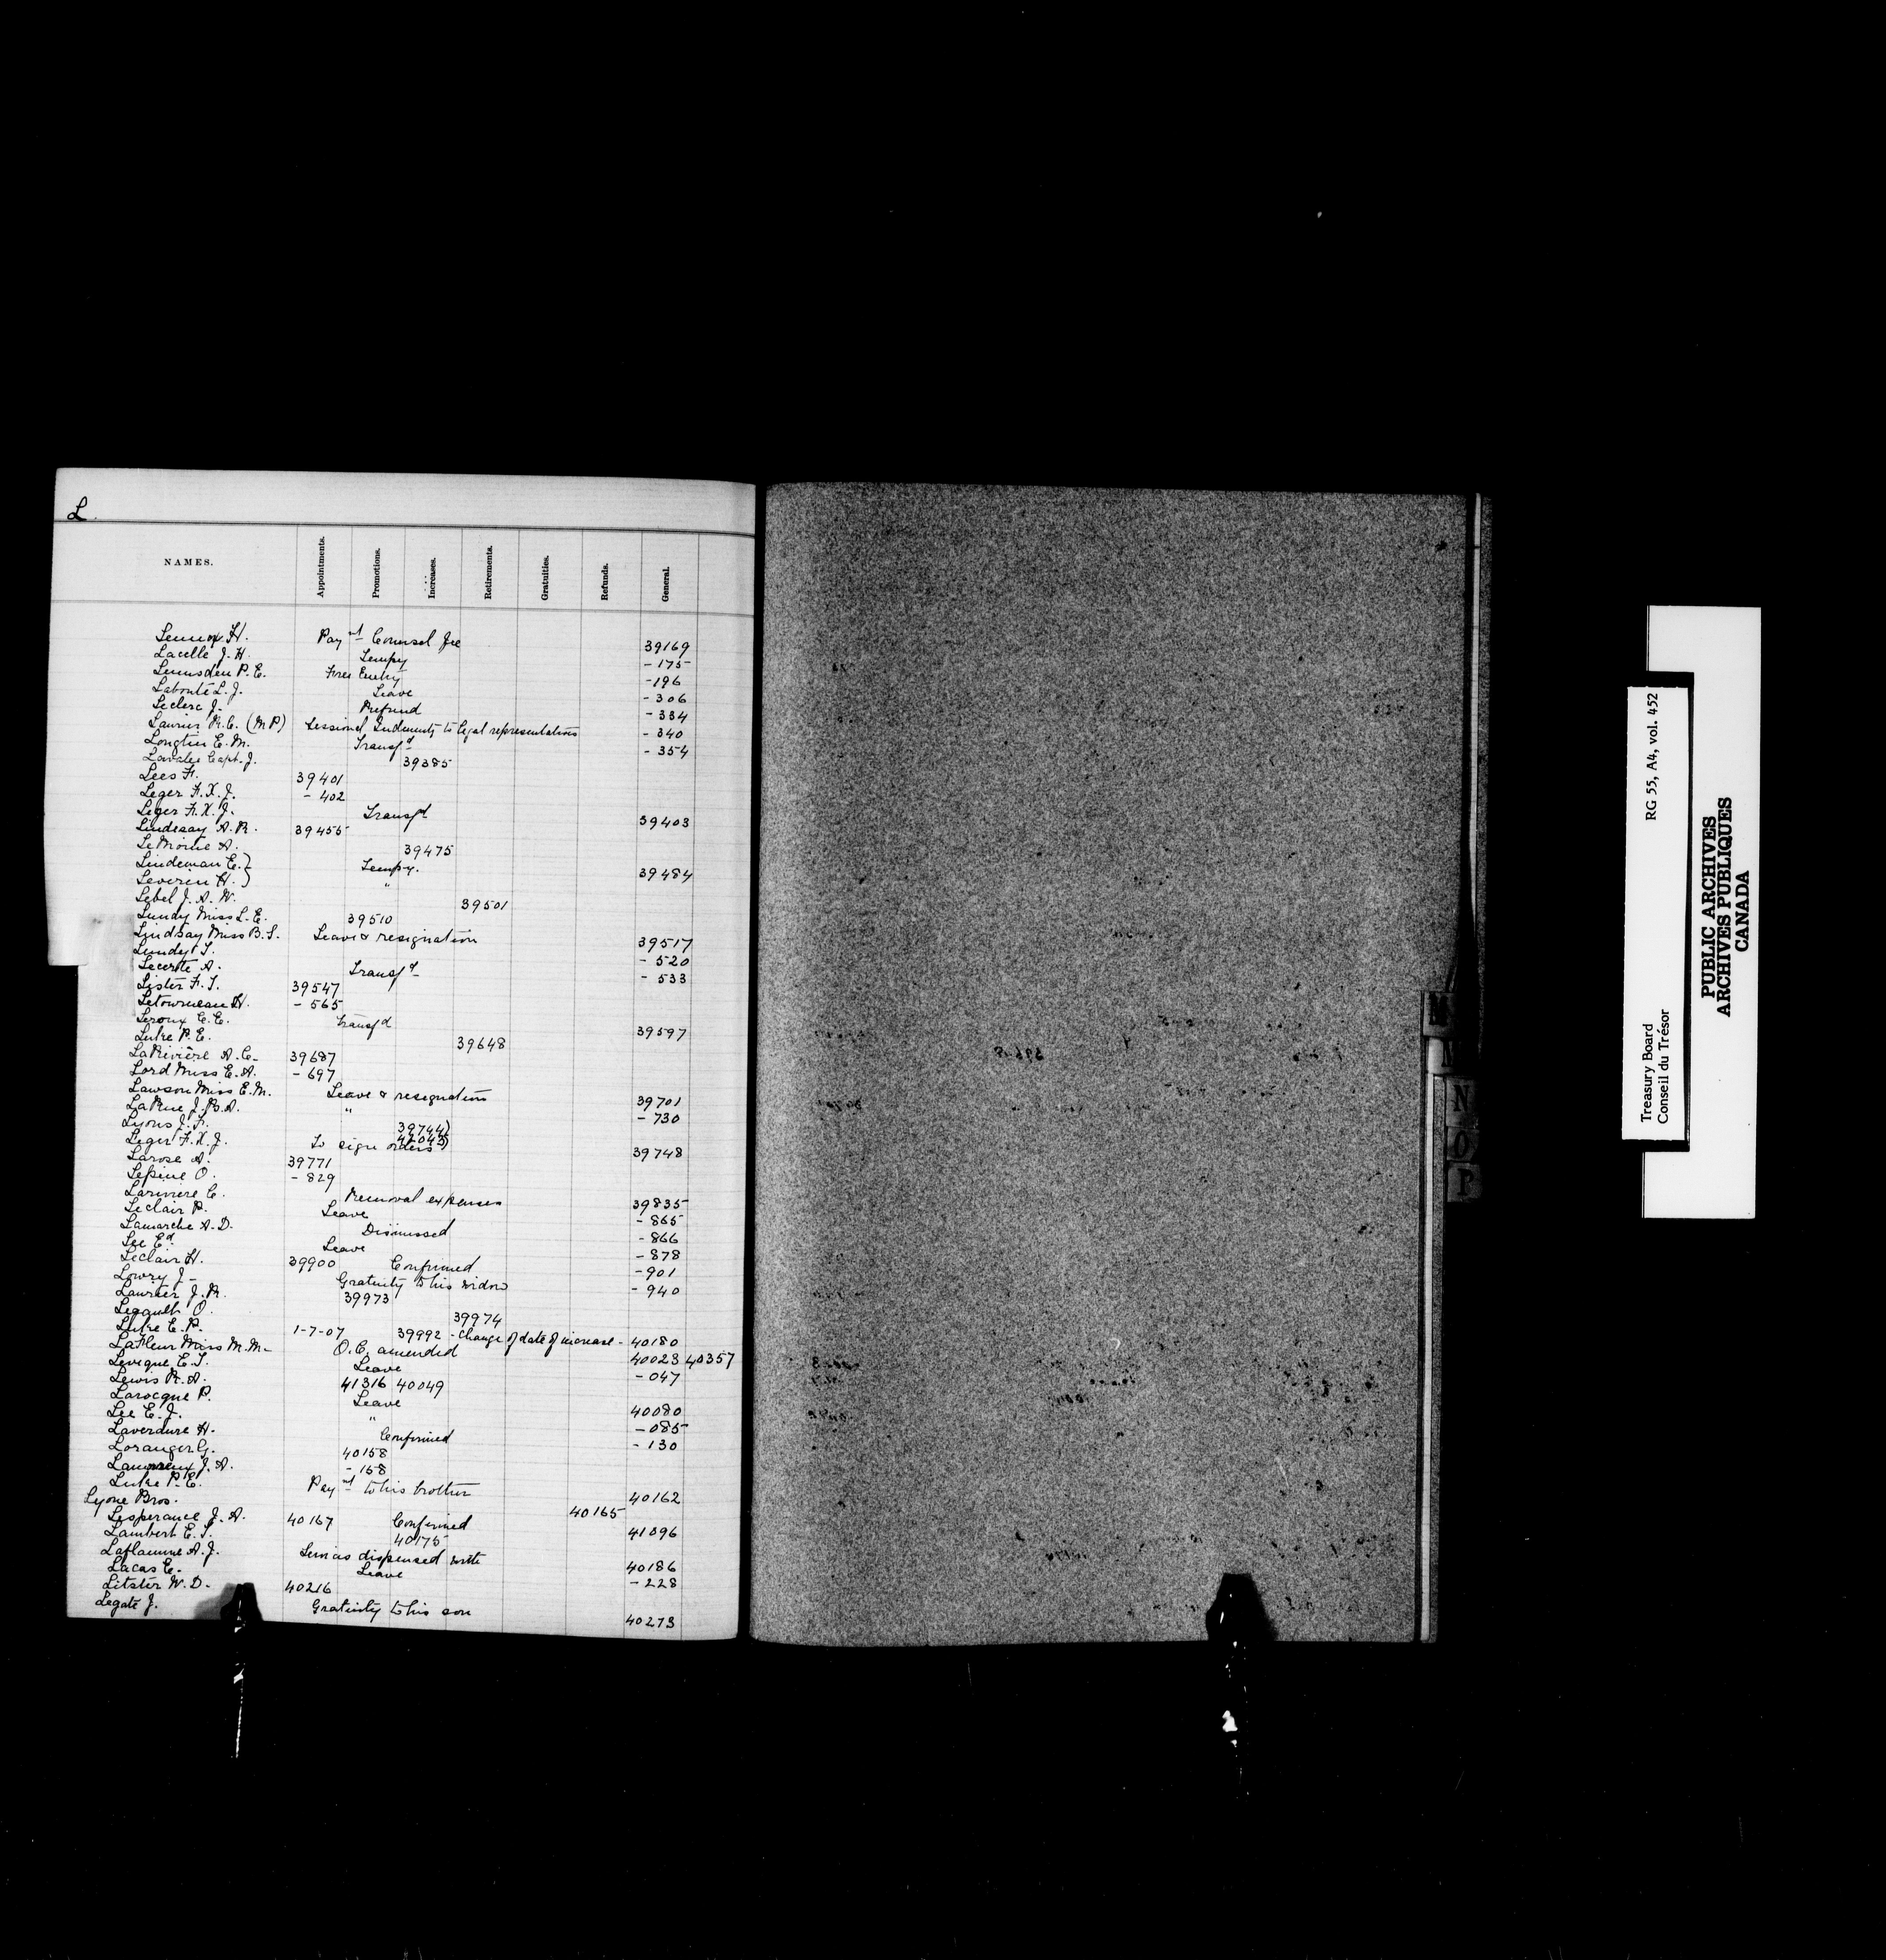 L
NAMES. Appointments. Promotions. Increases. Retirements. Gratuities. Refunds. General.
Lennox H. Paymt Counsel fee 39169
Lacelle J. H. Tempy - 175
Lumsden P. E. Free Entry - 196
Labonté L. J. Leave - 306
Leclerc J. Refund - 334
Laurier R. C. (M P) Sessional Indemnity to legal representatives - 340
Longtin E. M. Transfd - 354
Lavalee Capt. J. 39385
Lees F. 39401
Leger F. X. J. - 402
Leger F. X. J. Transfd 39403
Lindesay A. R. 39455
LeMoine A. 39475
Lindeman E. } Tempy. 39484
Severin H. } "
Lebel J. A. W. 39501
Lundy Miss L. E. 39510
Lindsay Miss B. S. Leave & resignation 39517
Lundy T. - 520
Lecerte A. Transfd - 533
Lister F. T. 39547
Letourneau H. - 565
Leroux E. E. Transfd 39597
Luke P. E. 39648
LaRivière A. C. 39687
Lord Miss E. A. - 697
Lawson Miss E. M. Leave & resignation 39701
LaRue J. B. A. " - 730
Lyons J. F. 39744)
42043)
Leger F. X. J. To sign orders 39748
Larose A. 39771
Lepine O. - 829
Lariviere C. Removal expenses 39835
Leclair P. Leave - 865
Lamarche A. D. Dismissed - 866
Lee Ed Leave - 878
Leclair H. 39900 Confirmed - 901
Lowry J - Gratuity to his widow - 940
Laurier J. R. 39973
Legault O. 39974
Luke E. P. 1-7-07 39992 - Change of date of increase - 40180
LaFleur Miss M. M. - O. C. amended 40023 40357
Leveque E. T. Leave - 047
Lewis R. A. 41316 40049
Larocque P. Leave 40080
Lee E. J. " - 085
Laverdure H. Confirmed - 130
Loranger G. 40158
J. A. - 158
Luke P. E. Paymt to his brother 40162
Lyone Bros. 40165
Lesperance J. A. 40167 Confirmed 41096
Lambert E. S. 40175
Laflamme A. J. Services dispensed with 40186
Lacas E. Leave - 228
Litster W. D. 40216
Legate J. Gratuity to his son 40273
M
N
O
P
Treasury Board RG 55, A4, vol. 452
Conseil du Trésor
PUBLIC ARCHIVES
ARCHIVES PUBLIQUES
CANADA